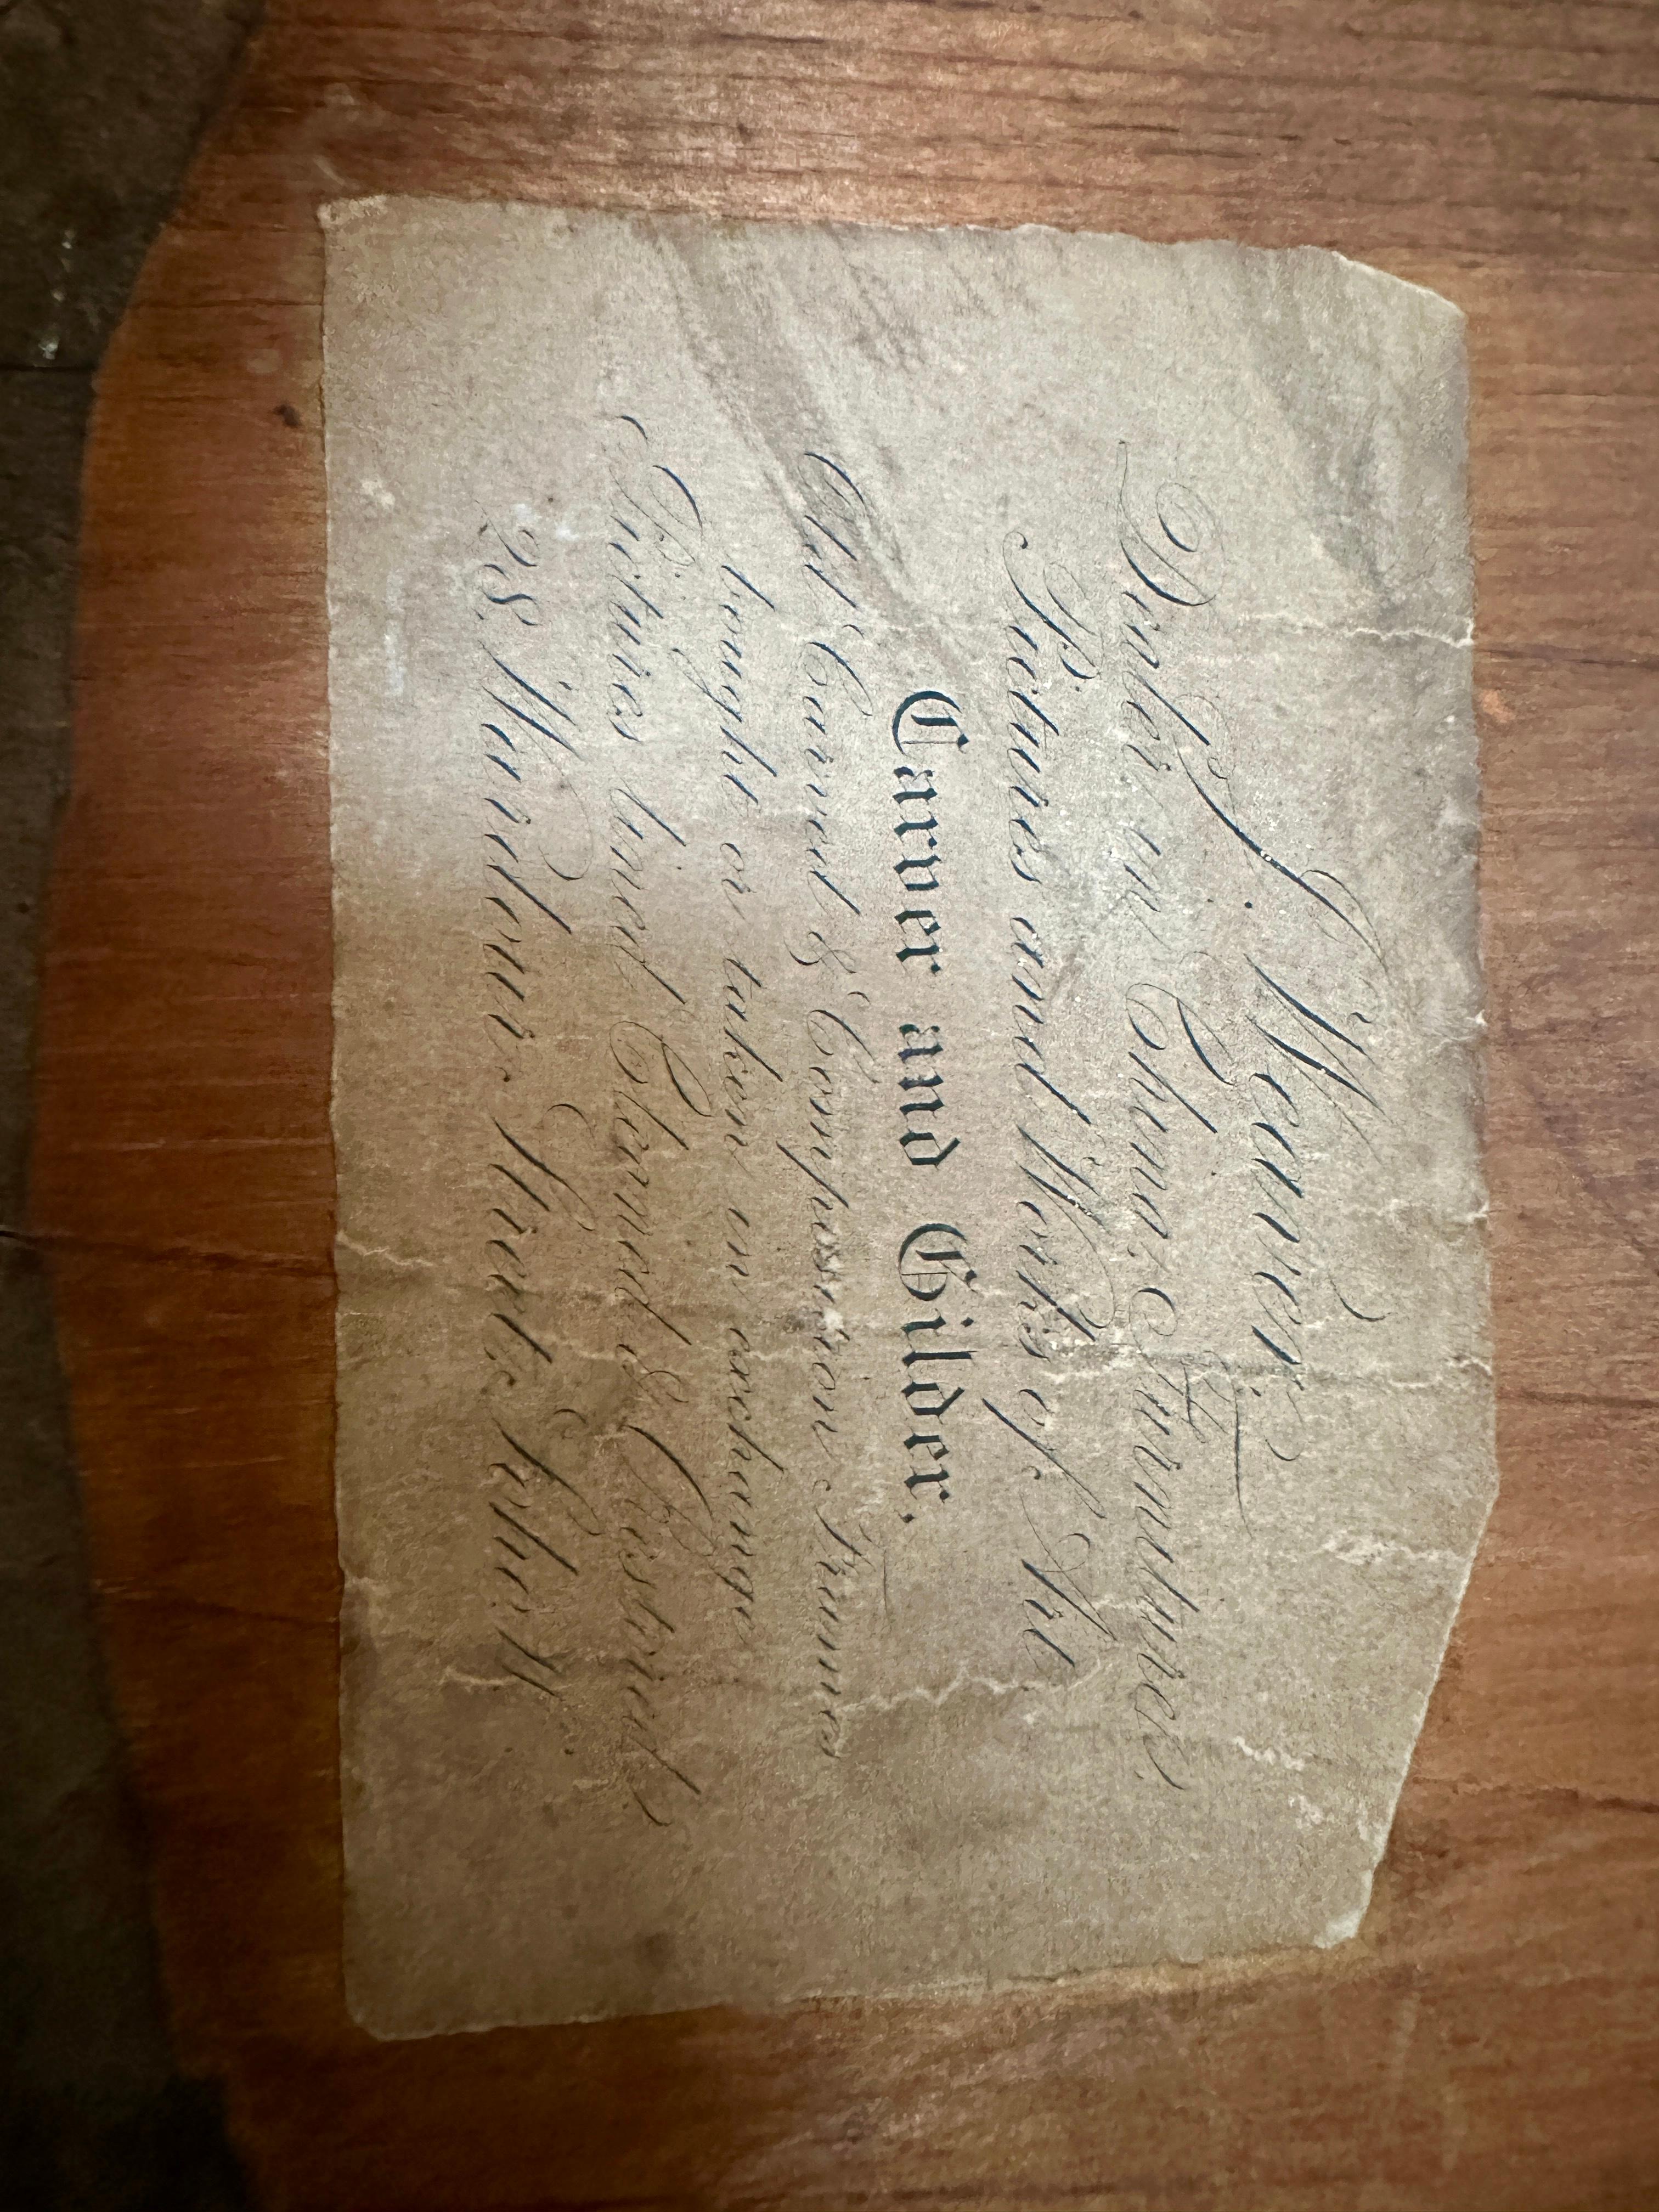 J. Weaver.
Dealer in China, Furnitures
Pictures and Works of Art
Carver and Gilder,
Old Carved & Composition Frames
bought or taken in exchange
Pictures lined Cleaned & Restored
28 Wardour Street, Soho. W